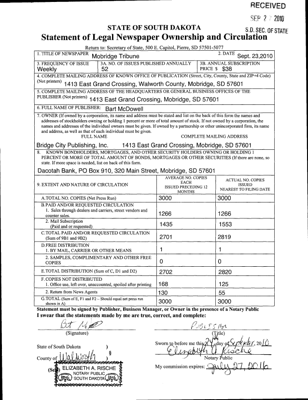 RECEIVED
SEP 27 2010
S.D. SEC. OF STATE
STATE OF SOUTH DAKOTA
Statement of Legal Newspaper Ownership and Circulation
Return to: Secretary of State, 500 E. Capitol, Pierre, SD 57501-5077
1. TITLE OF NEWSPAPER Mobridge Tribune
2. DATE Sept. 23,2010
3. FREQUENCY OF ISSUE Weekly
3A. NO. OF ISSUES PUBLISHED ANNUALLY 52
3B. ANNUAL SUBSCRIPTION PRICE $ $38
4. COMPLETE MAILING ADDRESS OF KNOWN OFFICE OF PUBLICATION (Street, City, County, State and ZIP+4 Code)
(Not printers) 1413 East Grand Crossing, Walworth County, Mobridge, SD 57601
5. COMPLETE MAILING ADDRESS OF THE HEADQUARTERS OR GENERAL BUSINESS OFFICES OF THE
PUBLISHERS (Not printers) 1413 East Grand Crossing, Mobridge, SD 57601
6. FULL NAME OF PUBLISHER: Bart McDowell
7. OWNER (If owned by a corporation, its name and address must be stated and also immediately
FULL NAME COMPLETE MAILING ADDRESS
Bridge City Publishing, Inc. 1413 East Grand Crossing, Mobridge, SD 57601
8. KNOWN BONDHOLDERS, MORTGAGEES, AND OTHER SECURITY HOLDERS OWNING OR HOLDING 1
PERCENT OR MORE OF TOTAL AMOUNT OF BONDS, MORTGAGES OR OTHER SECURITIES (If there are none, so
state. If more space is needed, list on back of this form.
Dacotah Bank, PO Box 910, 320 Main Street, Mobridge, SD 57601
9. EXTENT AND NATURE OF CIRCULATION
AVERAGE NO. COPIES EACH ISSUED PRECEDING 12 MONTHS
ACTUAL NO. COPIES ISSUED NEAREST TO FILING DATE
A.TOTAL NO. COPIES (Net Press Run) 3000 3000
B.PAID AND/OR REQUESTED CIRCULATION
1. Sales through dealers and carriers, street vendors and
counter sales. 1266 1266
2. Mail Subscription
(Paid and or requested) 1435 1553
C.TOTAL PAID AND/OR REQUESTED CIRCULATION
(Sum of 9B1 and 9B2) 2701 2819
D.FREE DISTRIBUTION
1. BY MAIL, CARRIER OR OTHER MEANS 1 1
2. SAMPLES, COMPLIMENTARY AND OTHER FREE
COPIES 0 0
E.TOTAL DISTRIBUTION (Sum of C, D1 and D2) 2702 2820
F.COPIES NOT DISTRIBUTED
1. Office use, left over, unaccounted, spoiled after printing 168 125
2. Return from News Agents 130 55
G.TOTAL (Sum of E, F1 and F2 – Should equal net press run
shown in A) 3000 3000
Statement must be signed by Publisher, Business Manager, or Owner in the presence of a Notary Public
I swear that the statements made by me are true, correct, and complete:
(Signature) (Title)
State of South Dakota )
County of Walworth )
Sworn to before me this day of September, 2010
Elizabeth A. Rische
Notary Public
My commission expires: July 27, 2016
ELIZABETH A. RISCHE
NOTARY PUBLIC
SOUTH DAKOTA